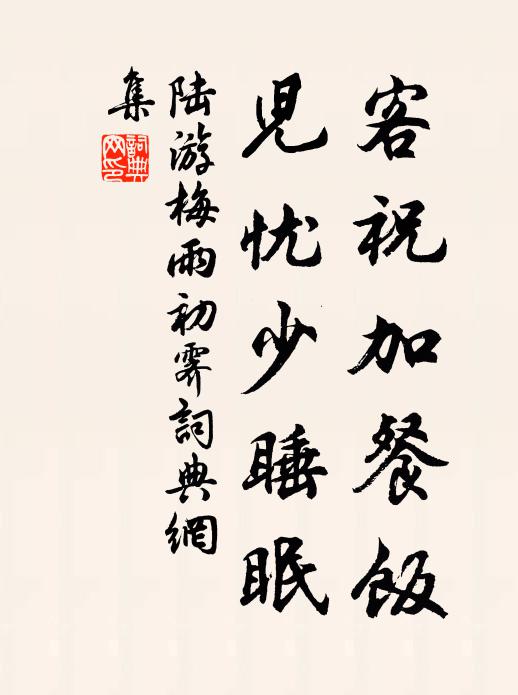 客祝加餐飯
兒忧少睡眠
陆游梅雨初霽詞典網
集
詞典
网印